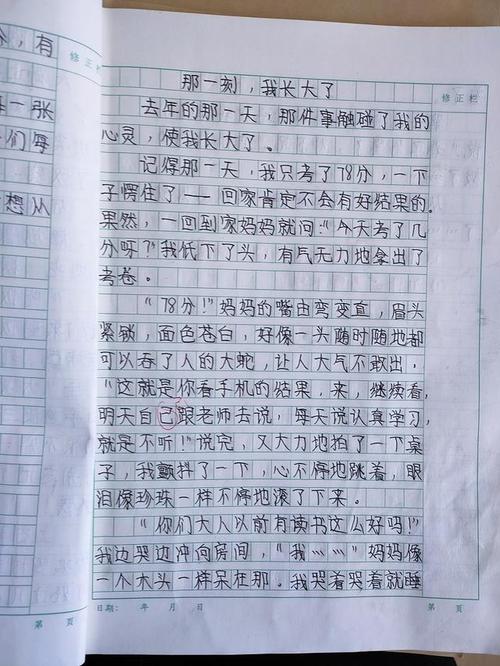 ，有
一张
们每
想从
第 页
修正栏
修正栏
那一刻，我长大了
去年的那一天，那件事触碰了我的
心灵，使我长大了。
记得那一天，我只考了78分，一下
子愣住了——回家肯定不会有好结果的。
果然，一回到家妈妈就问：“今天考了几
分呀？”我低下了头，有气无力地拿出了
考卷。
“78分！”妈妈的嘴由弯变直，眉头
紧锁，面色苍白，好像一头随时随地都
可以吞了人的大蛇，让人大气不敢出，
“这就是你看手机的结果，来，继续看，
明天自己跟老师去说，每天说认真学习，
就是不听！”说完，又大力地拍了一下桌
子，我颤抖了一下，心不停地跳着，眼
泪像珍珠一样不停地滚了下来。
“你们大人以前有读书这么好吗！”
我边哭边冲向房间，“我……”妈妈像
一个木头一样呆在那。我哭着哭着就睡
日期： 年 月 日
第 页